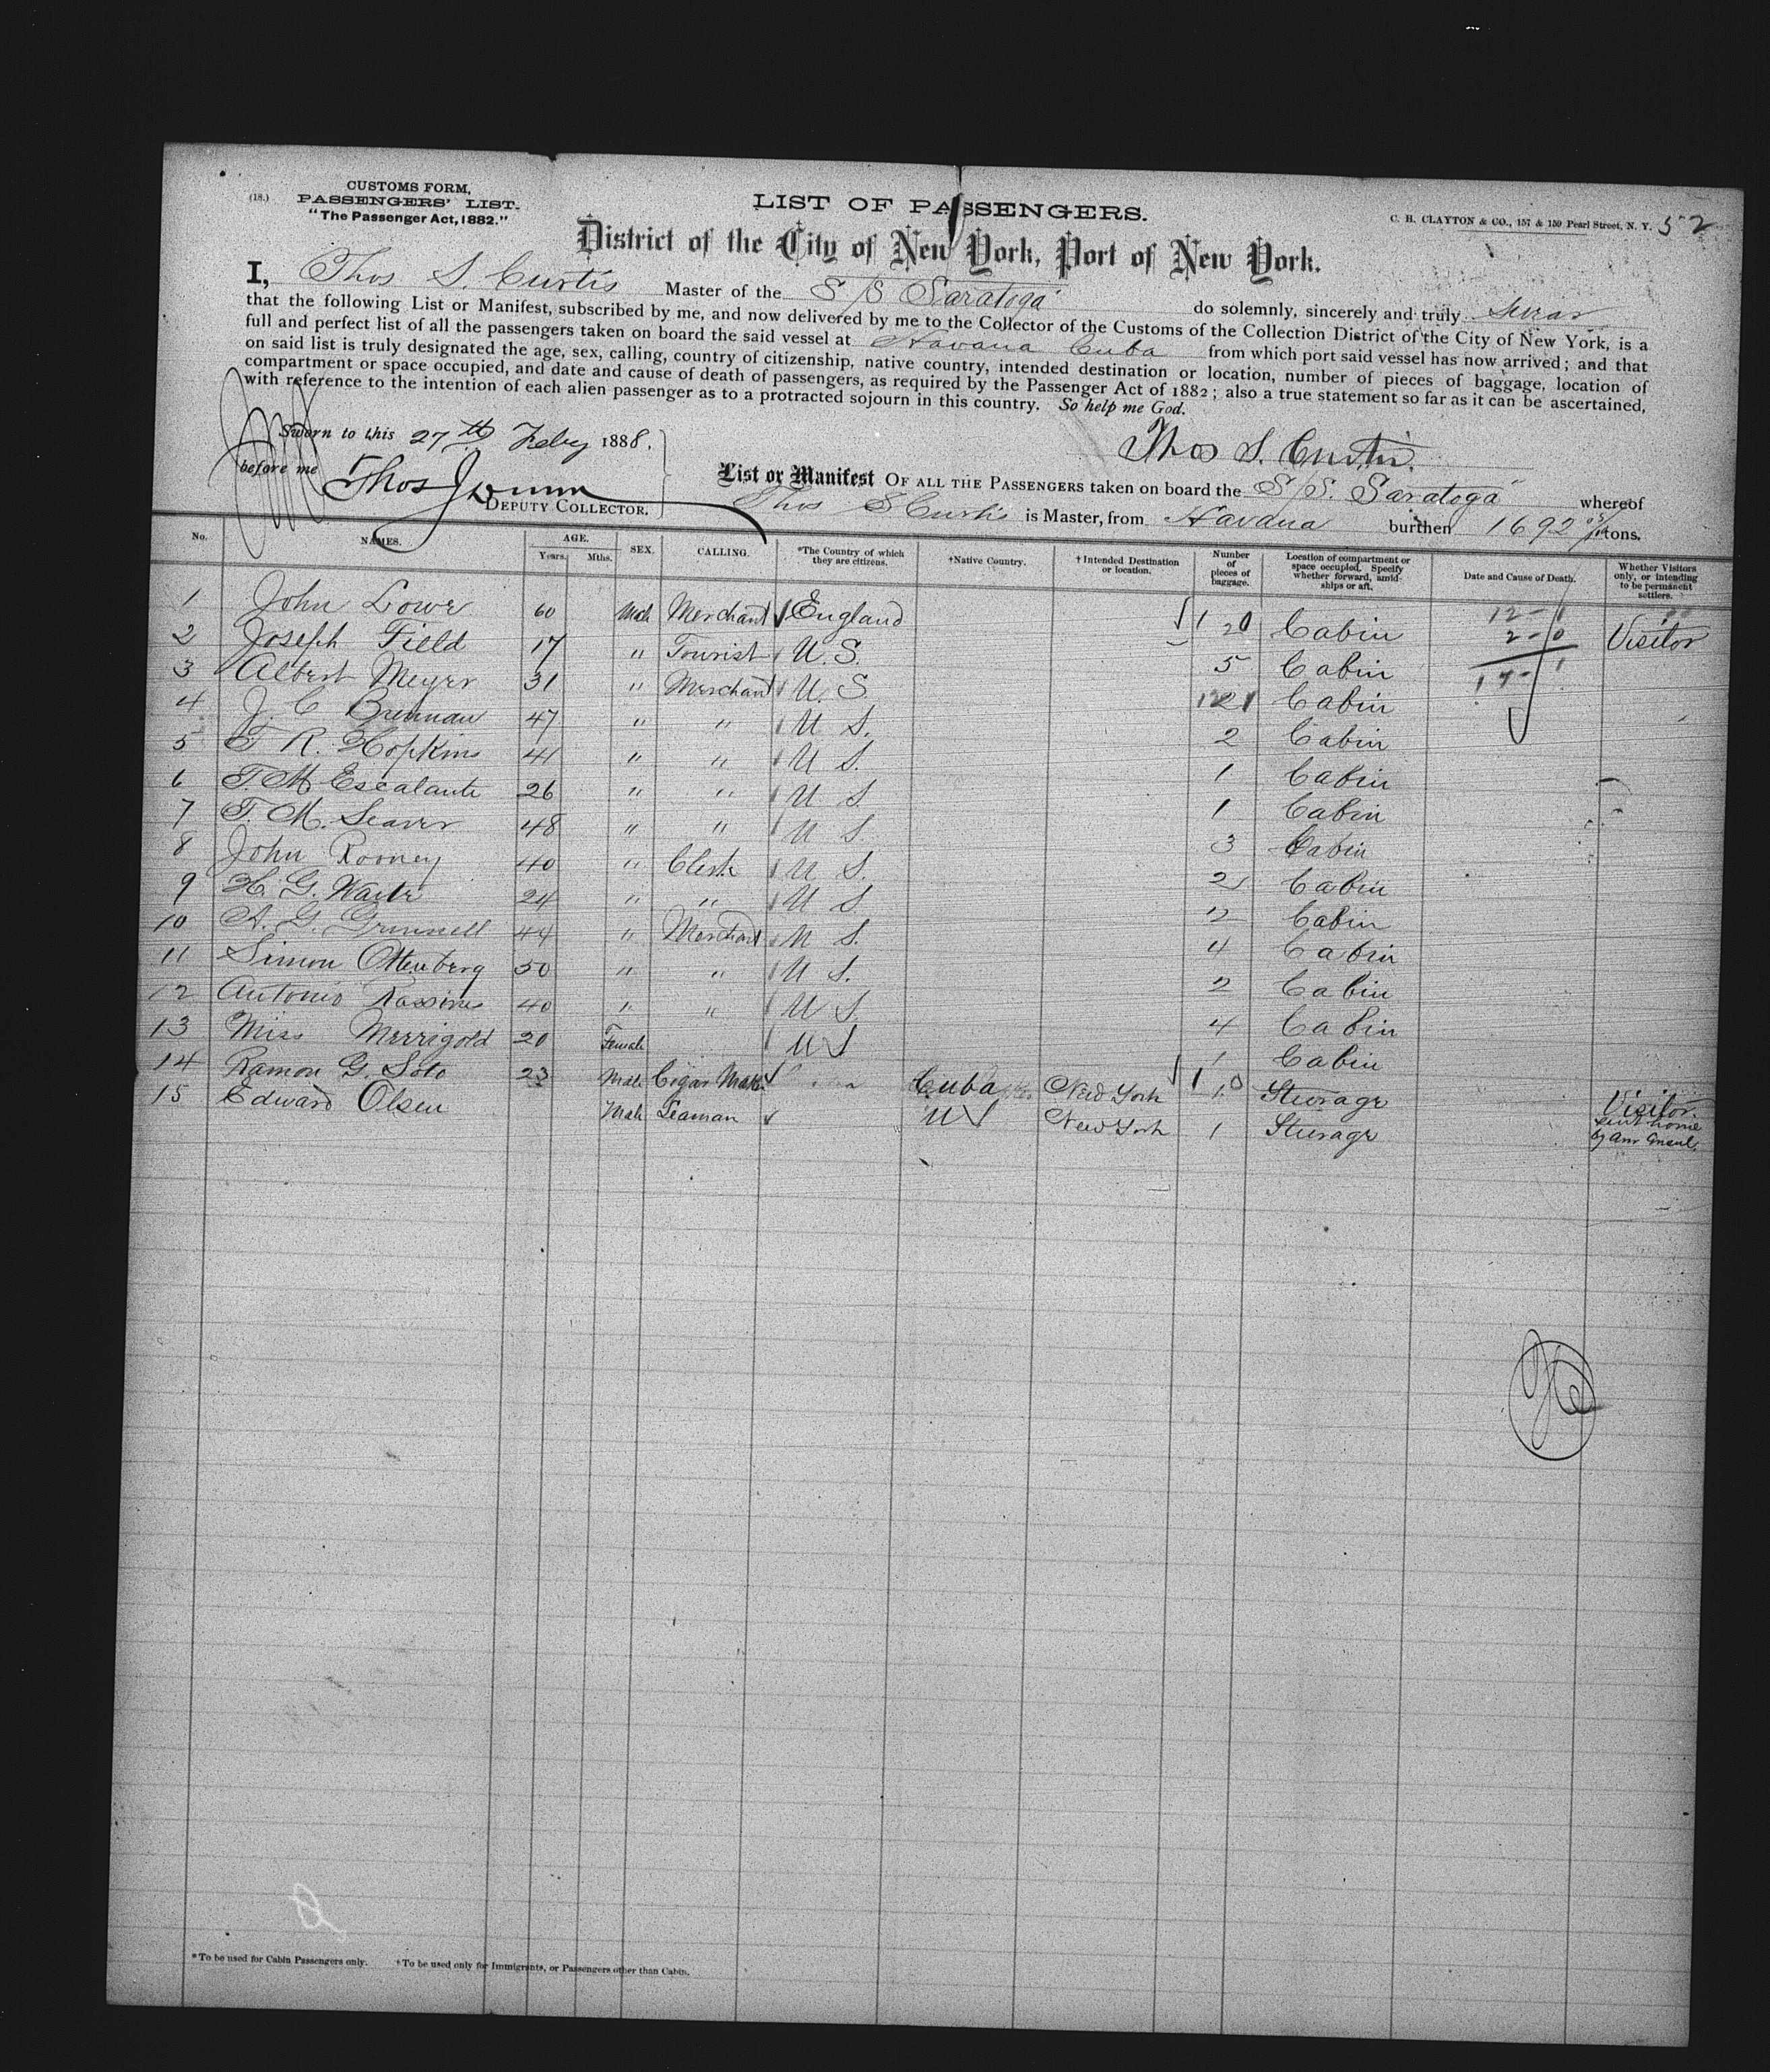 (18.)
CUSTOMS FORM,
PASSENGERS' LIST.
"The Passenger Act, 1882."
LIST OF PASSENGERS.
C. H. CLAYTON & CO., 157 & 159 Pearl Street, N. Y. 52
District of the City of New York, Port of New York.
I, Thos S. Curtis Master of the S/S Saratoga do solemnly, sincerely and truly swear
that the following List or Manifest, subscribed by me, and now delivered by me to the Collector of the Customs of the Collection District of the City of New York, is a
full and perfect list of all the passengers taken on board the said vessel at Havana Cuba from which port said vessel has now arrived; and that
on said list is truly designated the age, sex, calling, country of citizenship, native country, intended destination or location, number of pieces of baggage, location of
compartment or space occupied, and date and cause of death of passengers, as required by the Passenger Act of 1882; also a true statement so far as it can be ascertained,
with reference to the intention of each alien passenger as to a protracted sojourn in this country. So help me God.
Sworn to this 27th Feby 1888.
Thos S. Curtis.
before me Thos J Dunn
DEPUTY COLLECTOR.
List or Manifest OF ALL THE PASSENGERS taken on board the S/S. Saratoga whereof
Thos S Curtis is Master, from Havana burthen 1692 tons.
No. NAMES. AGE. Years. Mths. SEX. CALLING. *The Country of which they are citizens. †Native Country. †Intended Destination or location. Number of pieces of baggage. Location of compartment or space occupied. Specify whether forward, amidships or aft. Date and Cause of Death. Whether Visitors only, or intending to be permanent settlers.
1 John Lowe 60 Male Merchant England 20 Cabin Visitor
2 Joseph Field 17 " Tourist U.S. 5 Cabin
3 Albert Meyer 31 " Merchant U.S. Cabin
4 J. C Brennan 47 " " U S. 2 Cabin
5 T R. Hopkins 41 " " U S. 1 Cabin
6 T. M Escalante 26 " " U S 1 Cabin
7 T. M. Seaver 48 " " U S. 3 Cabin
8 John Rooney 40 " Clerk U S. 2 Cabin
9 H. G. Waite 24 " " U S 2 Cabin
10 A. G. Grinnell 44 " Merchant U S. 4 Cabin
11 Simon Ottenberg 50 " " U S. 2 Cabin
12 Antonio 40 " " U S. 4 Cabin
13 Miss Merrigold 20 Female U S 1 Cabin
14 Ramon G. Soto 23 Male Cigar Maker Cuba New York 1 Steerage Visitor.
15 Edward Olsen Male Seaman U S New York 1 Steerage Sent home
by Am Consul.
*To be used for Cabin Passengers only. †To be used only for Immigrants, or Passengers other than Cabin.